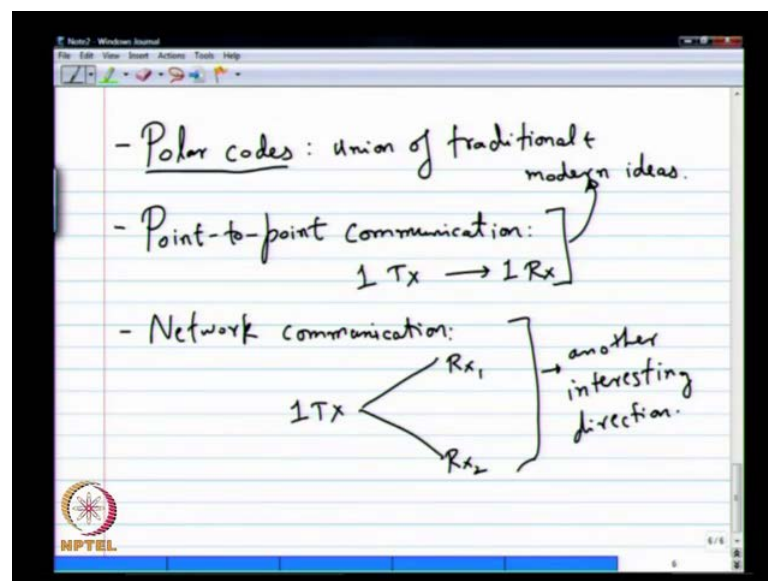 Note2 - Windows Journal
File Edit View Insert Actions Tools Help
- Polar codes : union of traditional +
modern ideas.
- Point-to-point communication:
1 Tx → 1 Rx
- Network communication:
Rx1
1 Tx
Rx2
→ another
interesting
direction.
NPTEL
6/6
6